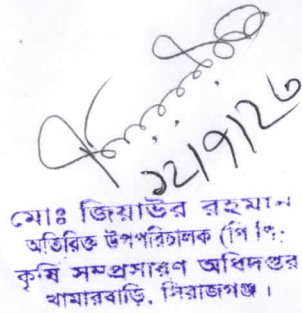 ১২/৭/২৩
মোঃ জিয়াউর রহমান
অতিরিক্ত উপপরিচালক (পি পি:
কৃষি সম্প্রসারণ অধিদপ্তর
খামারবাড়ি, সিরাজগঞ্জ।